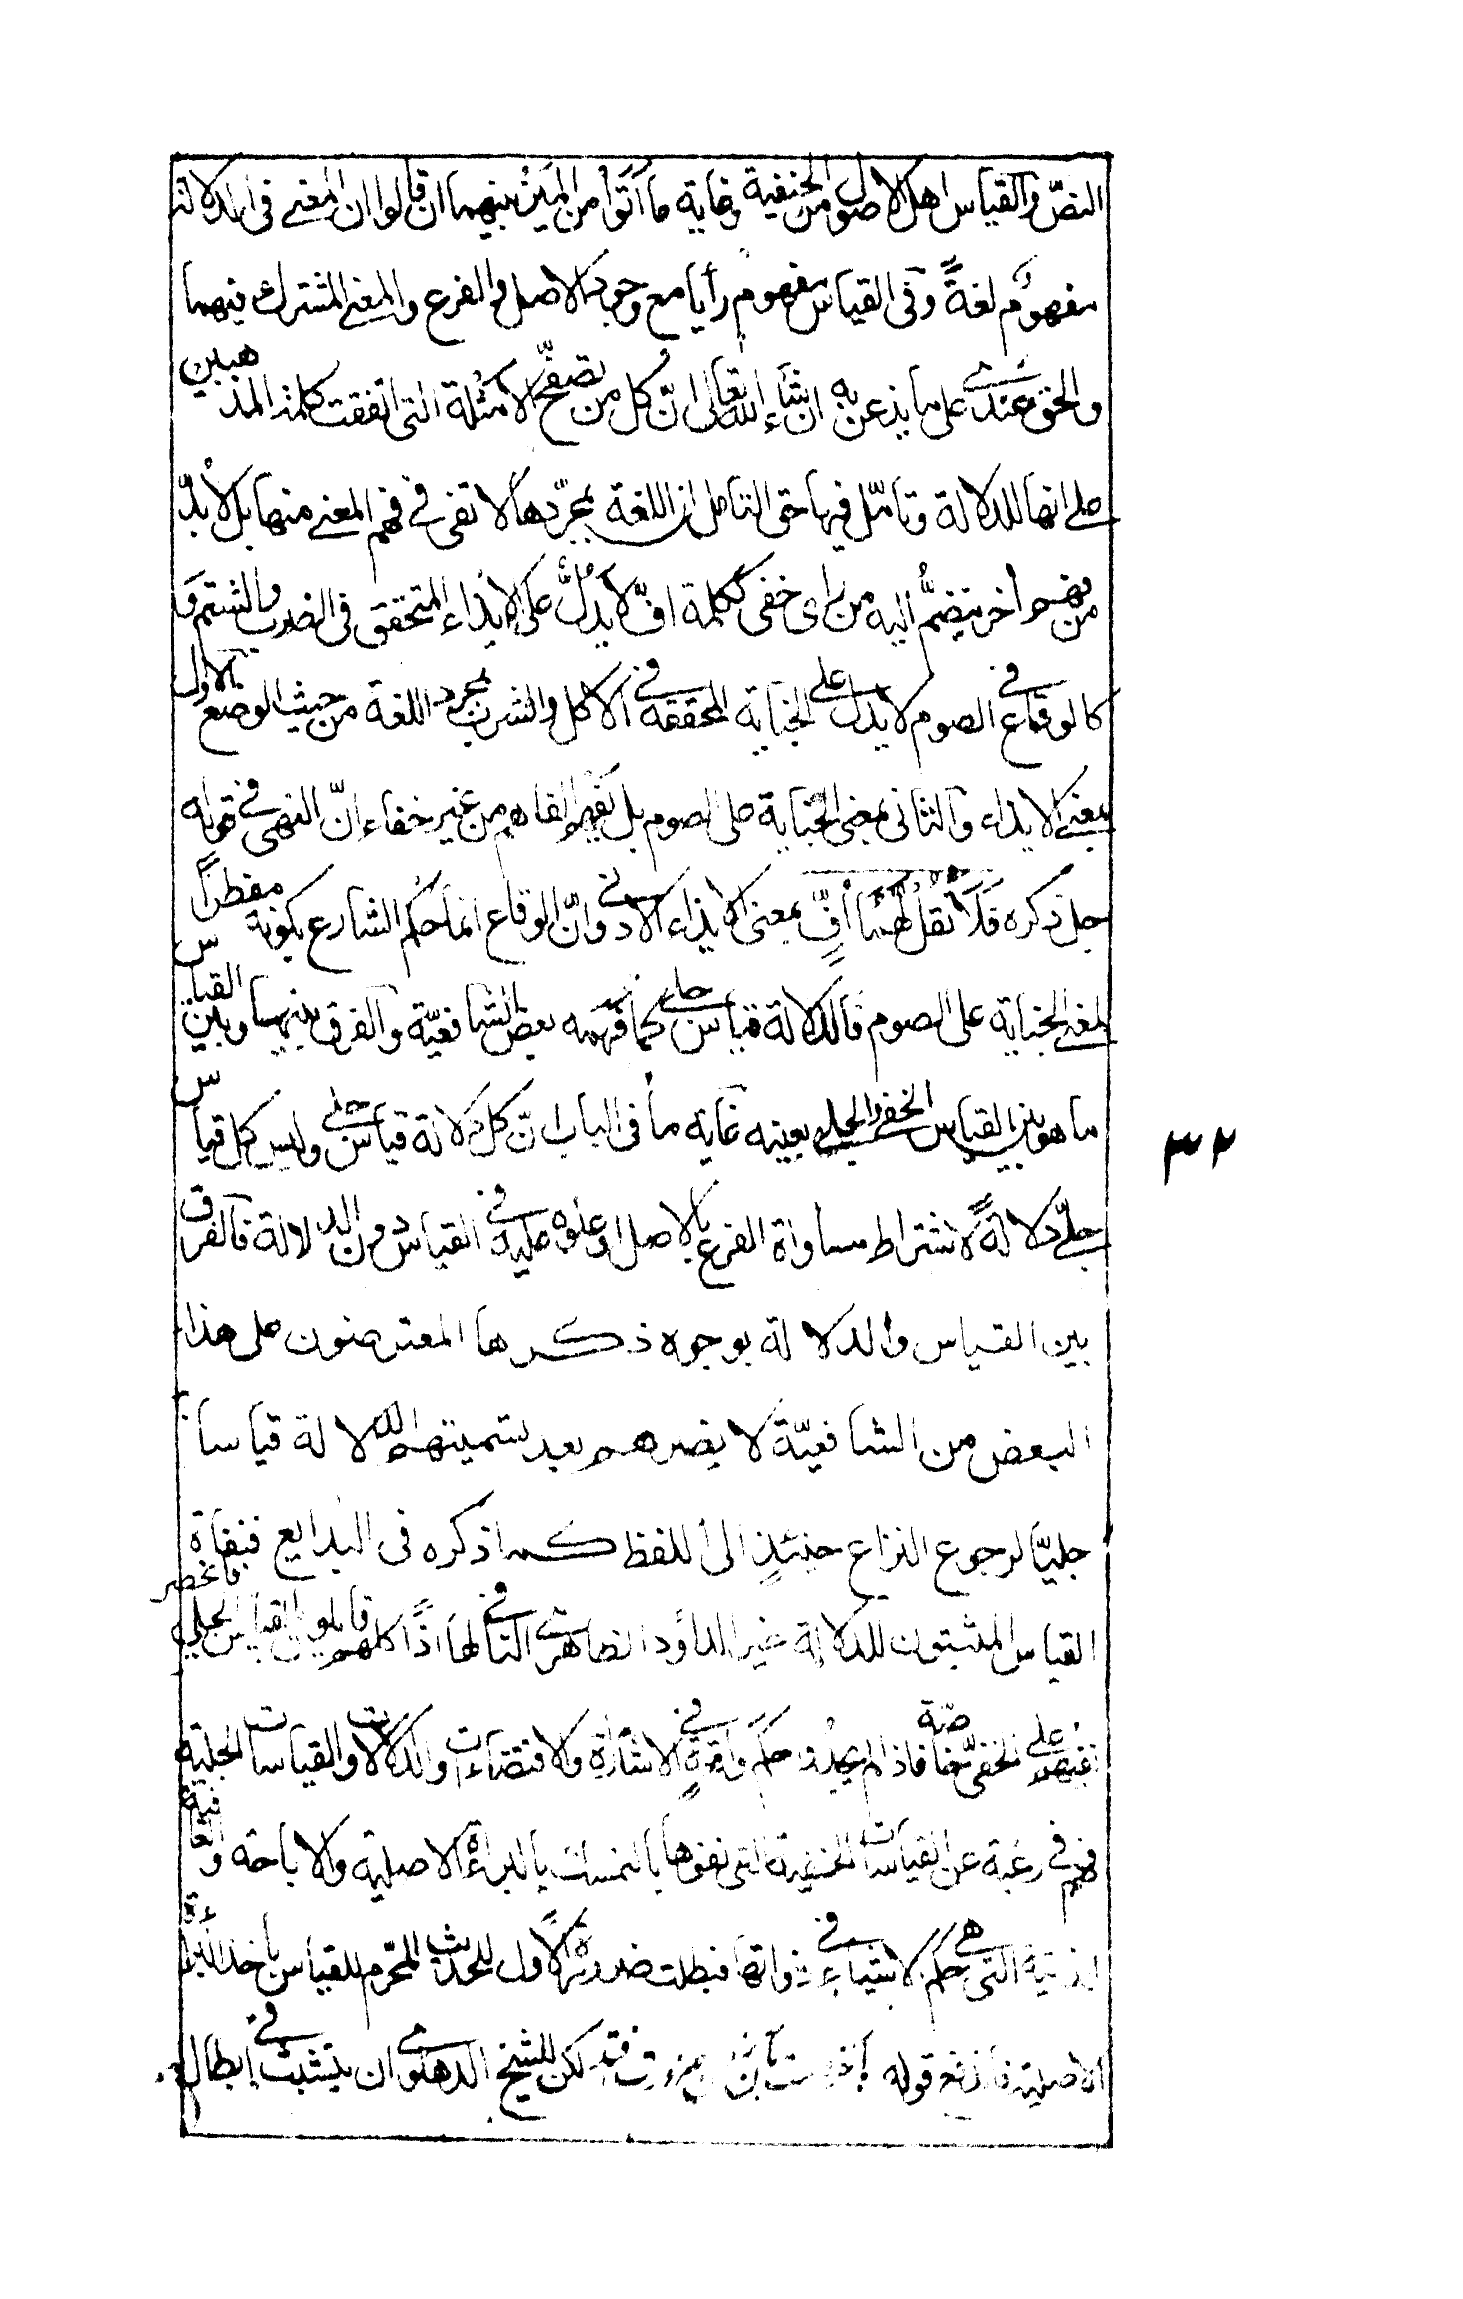 النصّ والقياس اهل الاصول من الحنفية وغاية ما أتَوْا من المَيْز بينهما ان قالوا ان المعنى فى الدلالة
مفهومٌ لغةً وفى القياس مفهوم رأيا مع وجود الاصل والفرع والمعنى المشترك فيهما
والحق عندى على ما يذعن به ان شاء الله تعالى انّ كل من تصفّح الامثلة التى اتفقت كلمة المذهبين
على انها للدلالة وتأمّل فيها حق التامل ان اللغة بمجرّدها لا تفى فى فهم المعنى منها بل لا بدّ
من فهم اخر ينضمّ اليه من رأى خفى ككلمة افّ لا يدلّ على الايذاء المتحقق فى الضرب والشتم و
كالوقاع فى الصوم لا يدل على الجناية المحققة فى الاكل والشرب بمجرد اللغة من حيث الوضع الاول
بمعنى الايذاء والثانى بمعنى الجناية على الصوم بل يفهم الفاهم من غير خفاء انّ النهى فى قوله
جل ذكره فَلَا تَقُلْ لَهُمَا أُفٍّ بمعنى الايذاء الادنى وانّ الوقاع انما حكم الشارع بكونه مفطرًا
لمعنى الجناية على الصوم فالدلالة قياس جلى كما فهمه بعض الشافعيّة والفرق بينها وبين القياس
ما هو بين القياس الخفى والجلى بعينه غاية ما فى الباب انّ كل دلالة قياس جلى وليس كل قياس
جلىّ دلالةً لاشتراط مساواة الفرع بالاصل او علوه عليه فى القياس دون الدلالة فالفرق
بين القياس والدلالة بوجوه ذكرها المعترضون على هذا
البعض من الشافعيّة لا يضرهم بعد تسميتهم الدلالة قياسا
جليّا لرجوع النزاع حينئذٍ الى اللفظ كما ذكره فى البدايع فنفاة
القياس المثبتون للدلالة غير الداؤد الظاهرى النافى لها اذًا كلهم قايلون القياس الجلى فانحصر
نفيهم على الخفى خاصّة فاذا لم يجدوا حكم واقعةٍ فى الاشارة والاقتضاءات والدلالات والقياسات الجلية
فهم فى رغبة عن القياسات الخفية التى نفوها بالتمسك بالبراءة الاصلية والاباحة والعافية
التى هى حكم الاشياء فى ذواتها فبطلت ضرورة الاول للحديث المحرّم للقياس باخذ البراءة
الاصلية فاندفع قوله لكن للشيخ الدهلوى ان يتشبث فى إبطال
٣٢